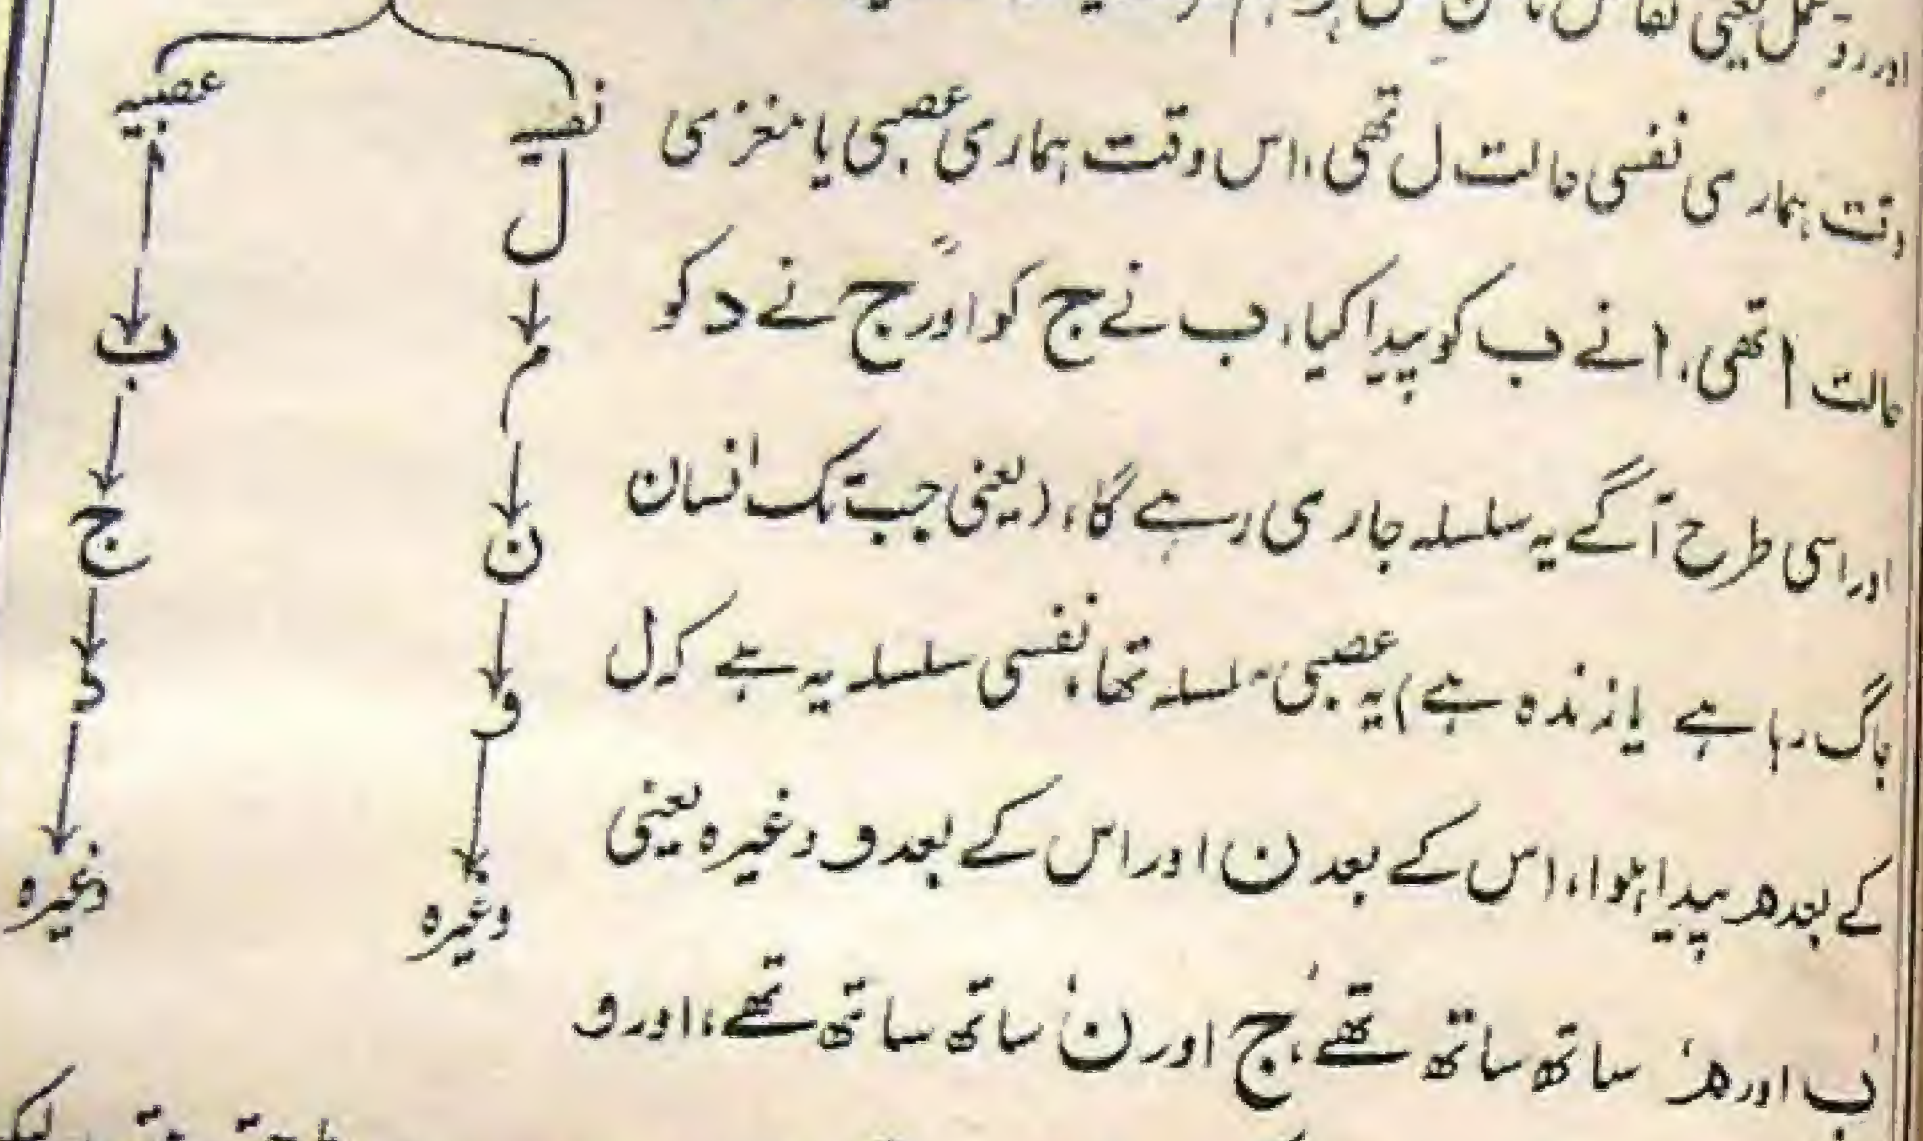 اور رد عمل یعنی
وقت ہماری نفسی حالت ل تھی، اس وقت ہماری عصبی یا مغزی
حالت ا تھی، ا نے ب کو پیدا کیا، ب نے ج کو اور ج نے د کو
اور اسی طرح آگے یہ سلسلہ جاری رہے گا، (یعنی جب تک انسان
جاگ رہا ہے یا زندہ ہے) یہ عصبی سلسلہ تھا، نفسی سلسلہ یہ ہے کہ ل
کے بعد ھر پیدا ہوا، اس کے بعد ن اور اس کے بعد و وغیرہ یعنی
ب اور ھر ساتھ ساتھ تھے، ج اور ن ساتھ ساتھ تھے، اور و
نفسیہ
ل
م
ن
و
وغیرہ
عصبیہ
ا
ب
ج
د
وغیرہ